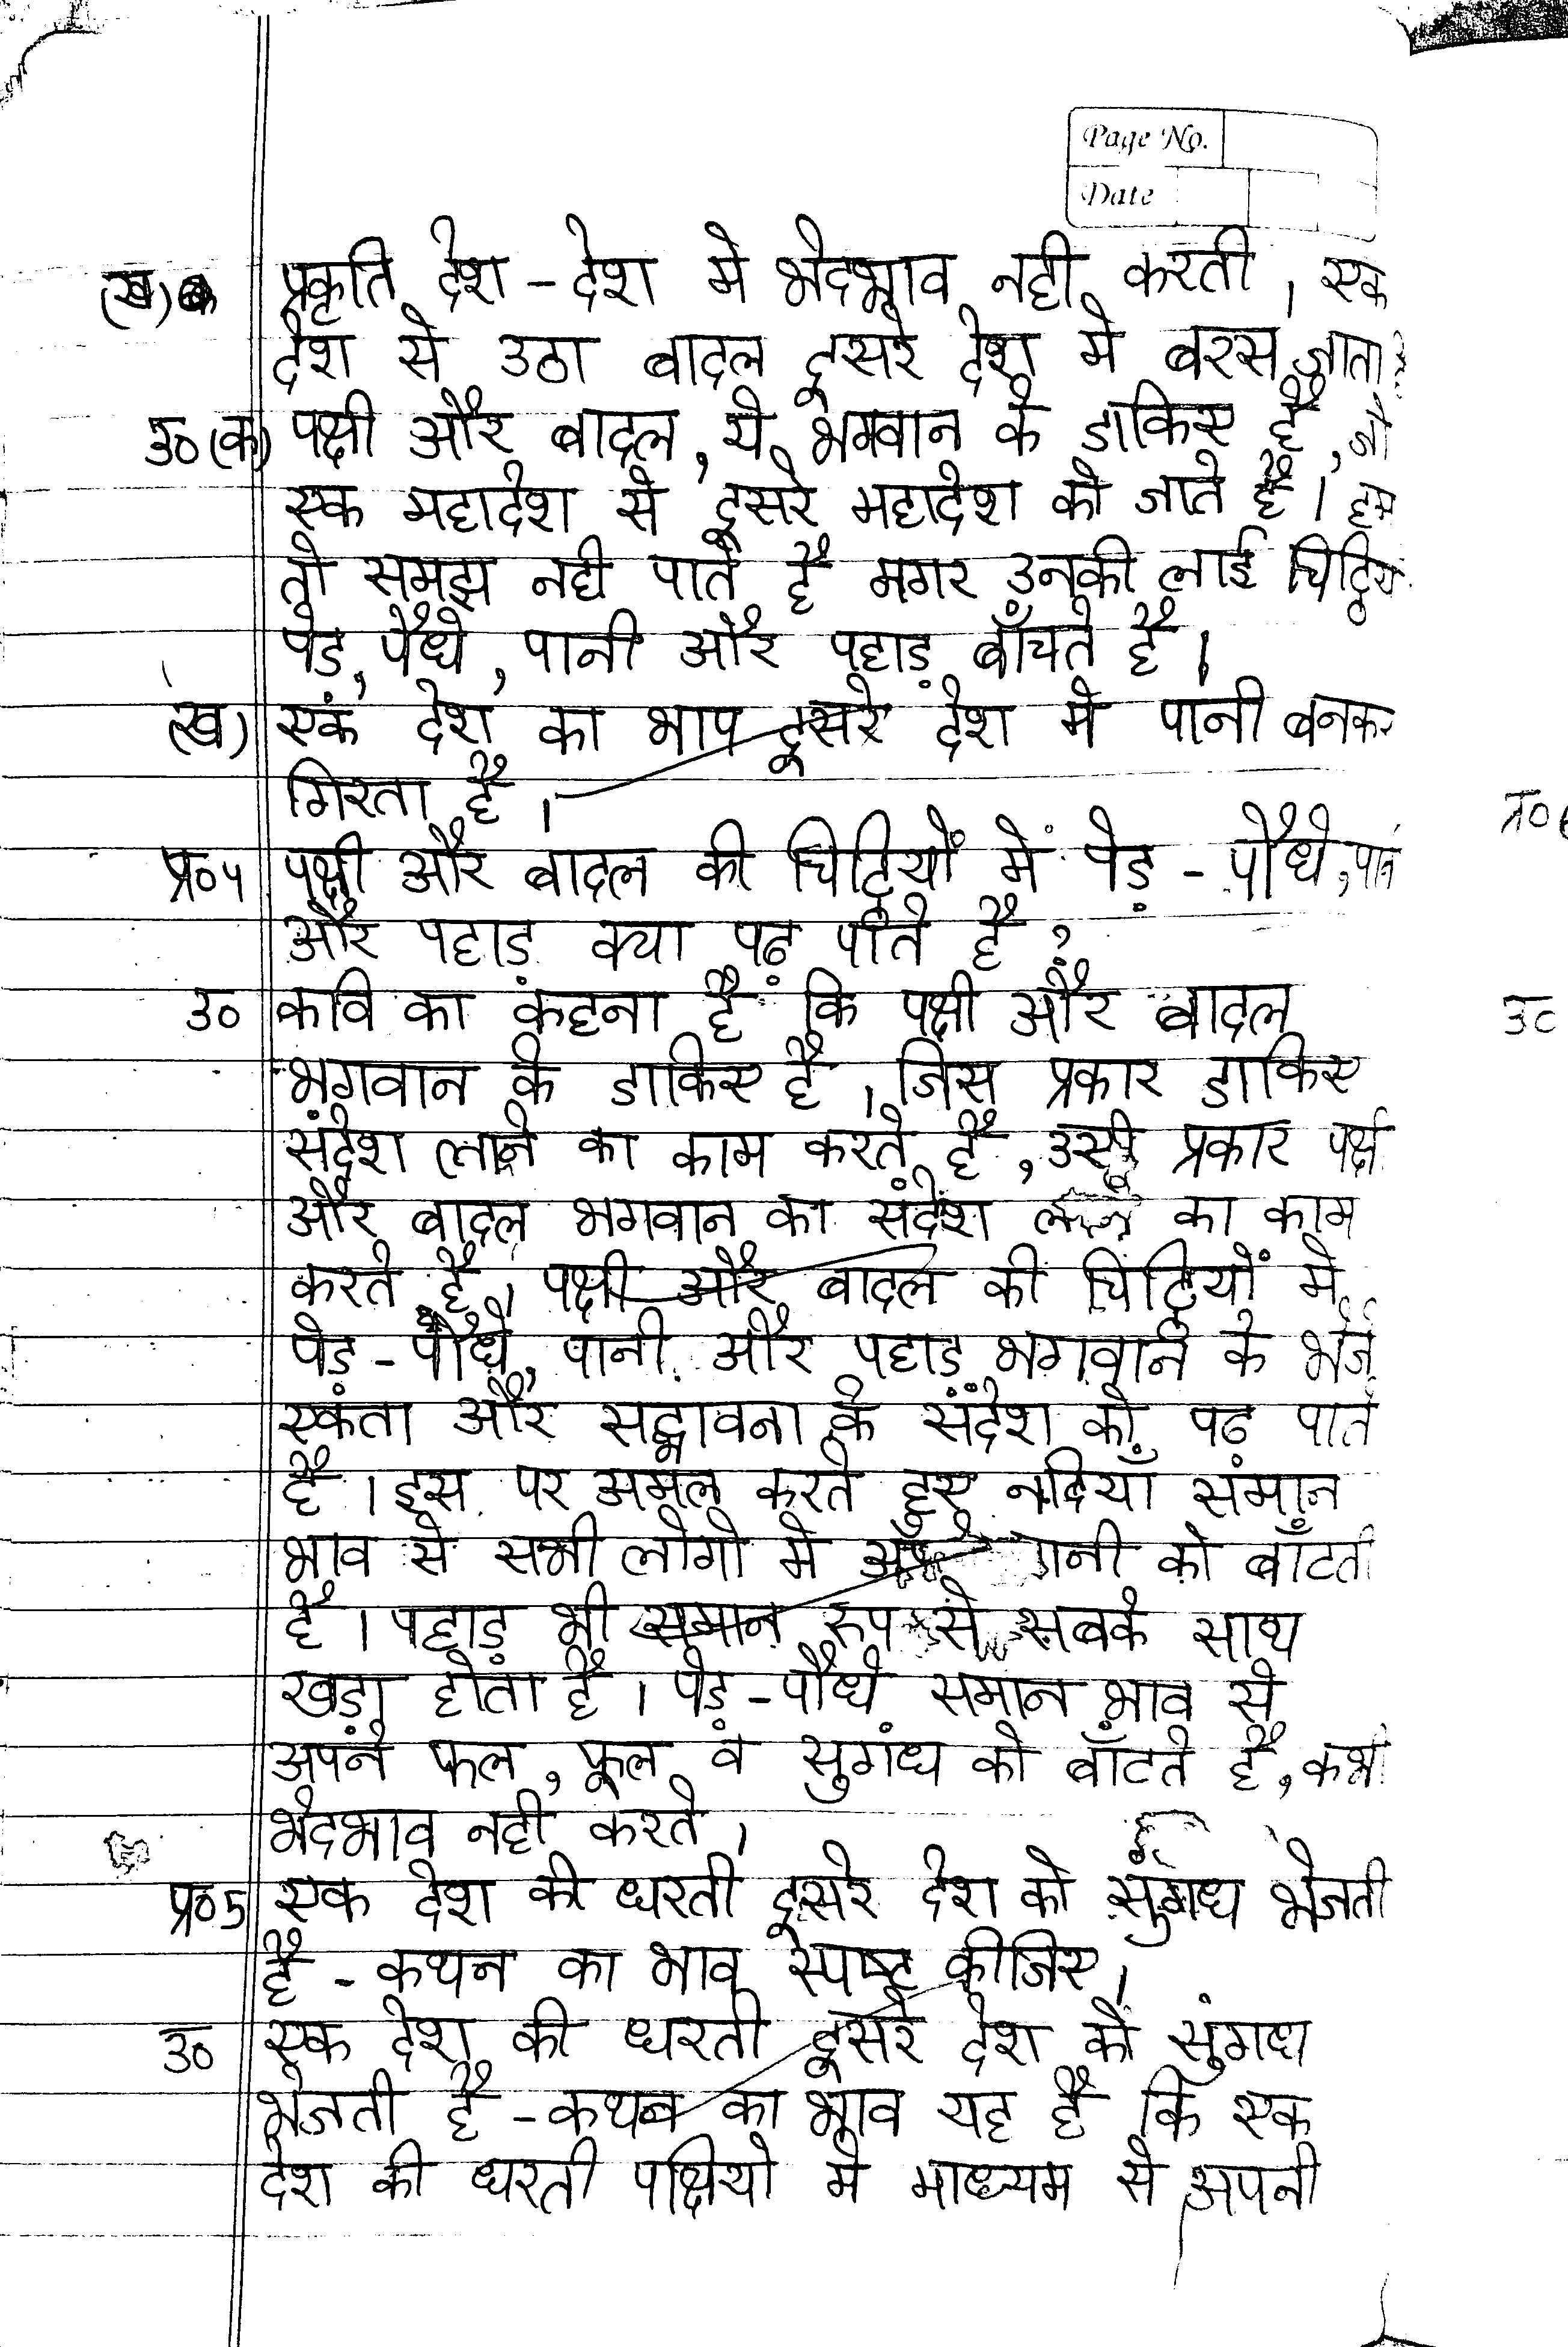 Page No.
Date
(ख) प्रकृति देश - देश मे भेदभाव नही करती । एक
देश से उठा बादल दूसरे देश मे बरस जाता
उ० (क) पक्षी और बादल, ये भगवान के डाकिए है, जो
एक महादेश से दूसरे महादेश को जाते है । हम
तो समझ नही पाते है मगर उनकी लाई चिट्ठिया
पेड़, पौधे, पानी और पहाड़ बाँचते है ।
(ख) एक देश का भाप दूसरे देश मे पानी बनकर
गिरता है ।
प्र०४ पक्षी और बादल की चिट्ठियों में पेड़ - पौधे,
और पहाड़ क्या पढ़ पाते है ?
उ० कवि का कहना है कि पक्षी और बादल
भगवान के डाकिए है । जिस प्रकार डाकिए
संदेश लाने का काम करते है, उसी प्रकार
और बादल भगवान का संदेश का काम
करते है । पक्षी और बादल की चिट्ठियों मे
पेड़ - पौधे, पानी और पहाड़ भगवान के भेजे
एकता और सद्भावना के संदेश को पढ़ पाते
है । इस पर अमल करते हुए नदियाँ समान
भाव से सभी लोगो मे को बाँटती
है । पहाड़ भी समान रुप से सबके साथ
खड़ा होता है । पेड़ - पौधे समान भाव से
अपने फल, फूल व सुगंध को बाँटते है,
भेदभाव नही करते ।
प्र०5 एक देश की धरती दूसरे देश को सुगंध भेजती
है - कथन का भाव स्पष्ट कीजिए ।
उ० एक देश की धरती दूसरे देश को सुंगध
भेजती है - कथन का भाव यह है कि एक
देश की धरती पक्षियो मे माध्यम से अपनी